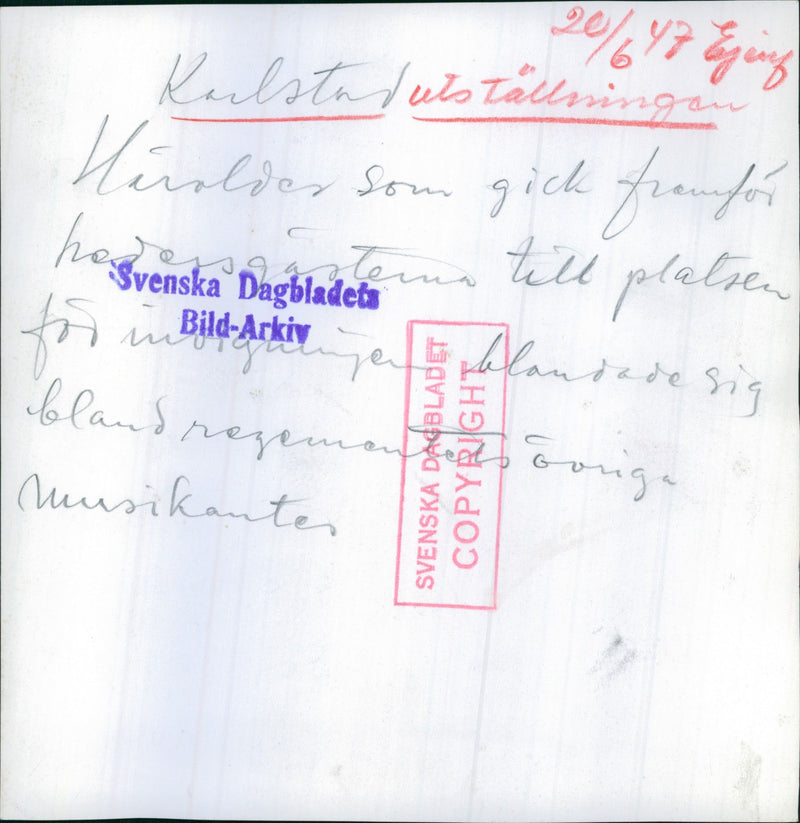 20/6 47 Ej inf
Karlstad utställningen
Härolder som gick framför
hedersgästerna till platsen
Svenska Dagbladets
Bild-Arkiv
för invigningen blandade sig
bland regementets övriga
musikanter
SVENSKA DAGBLADET
COPYRIGHT